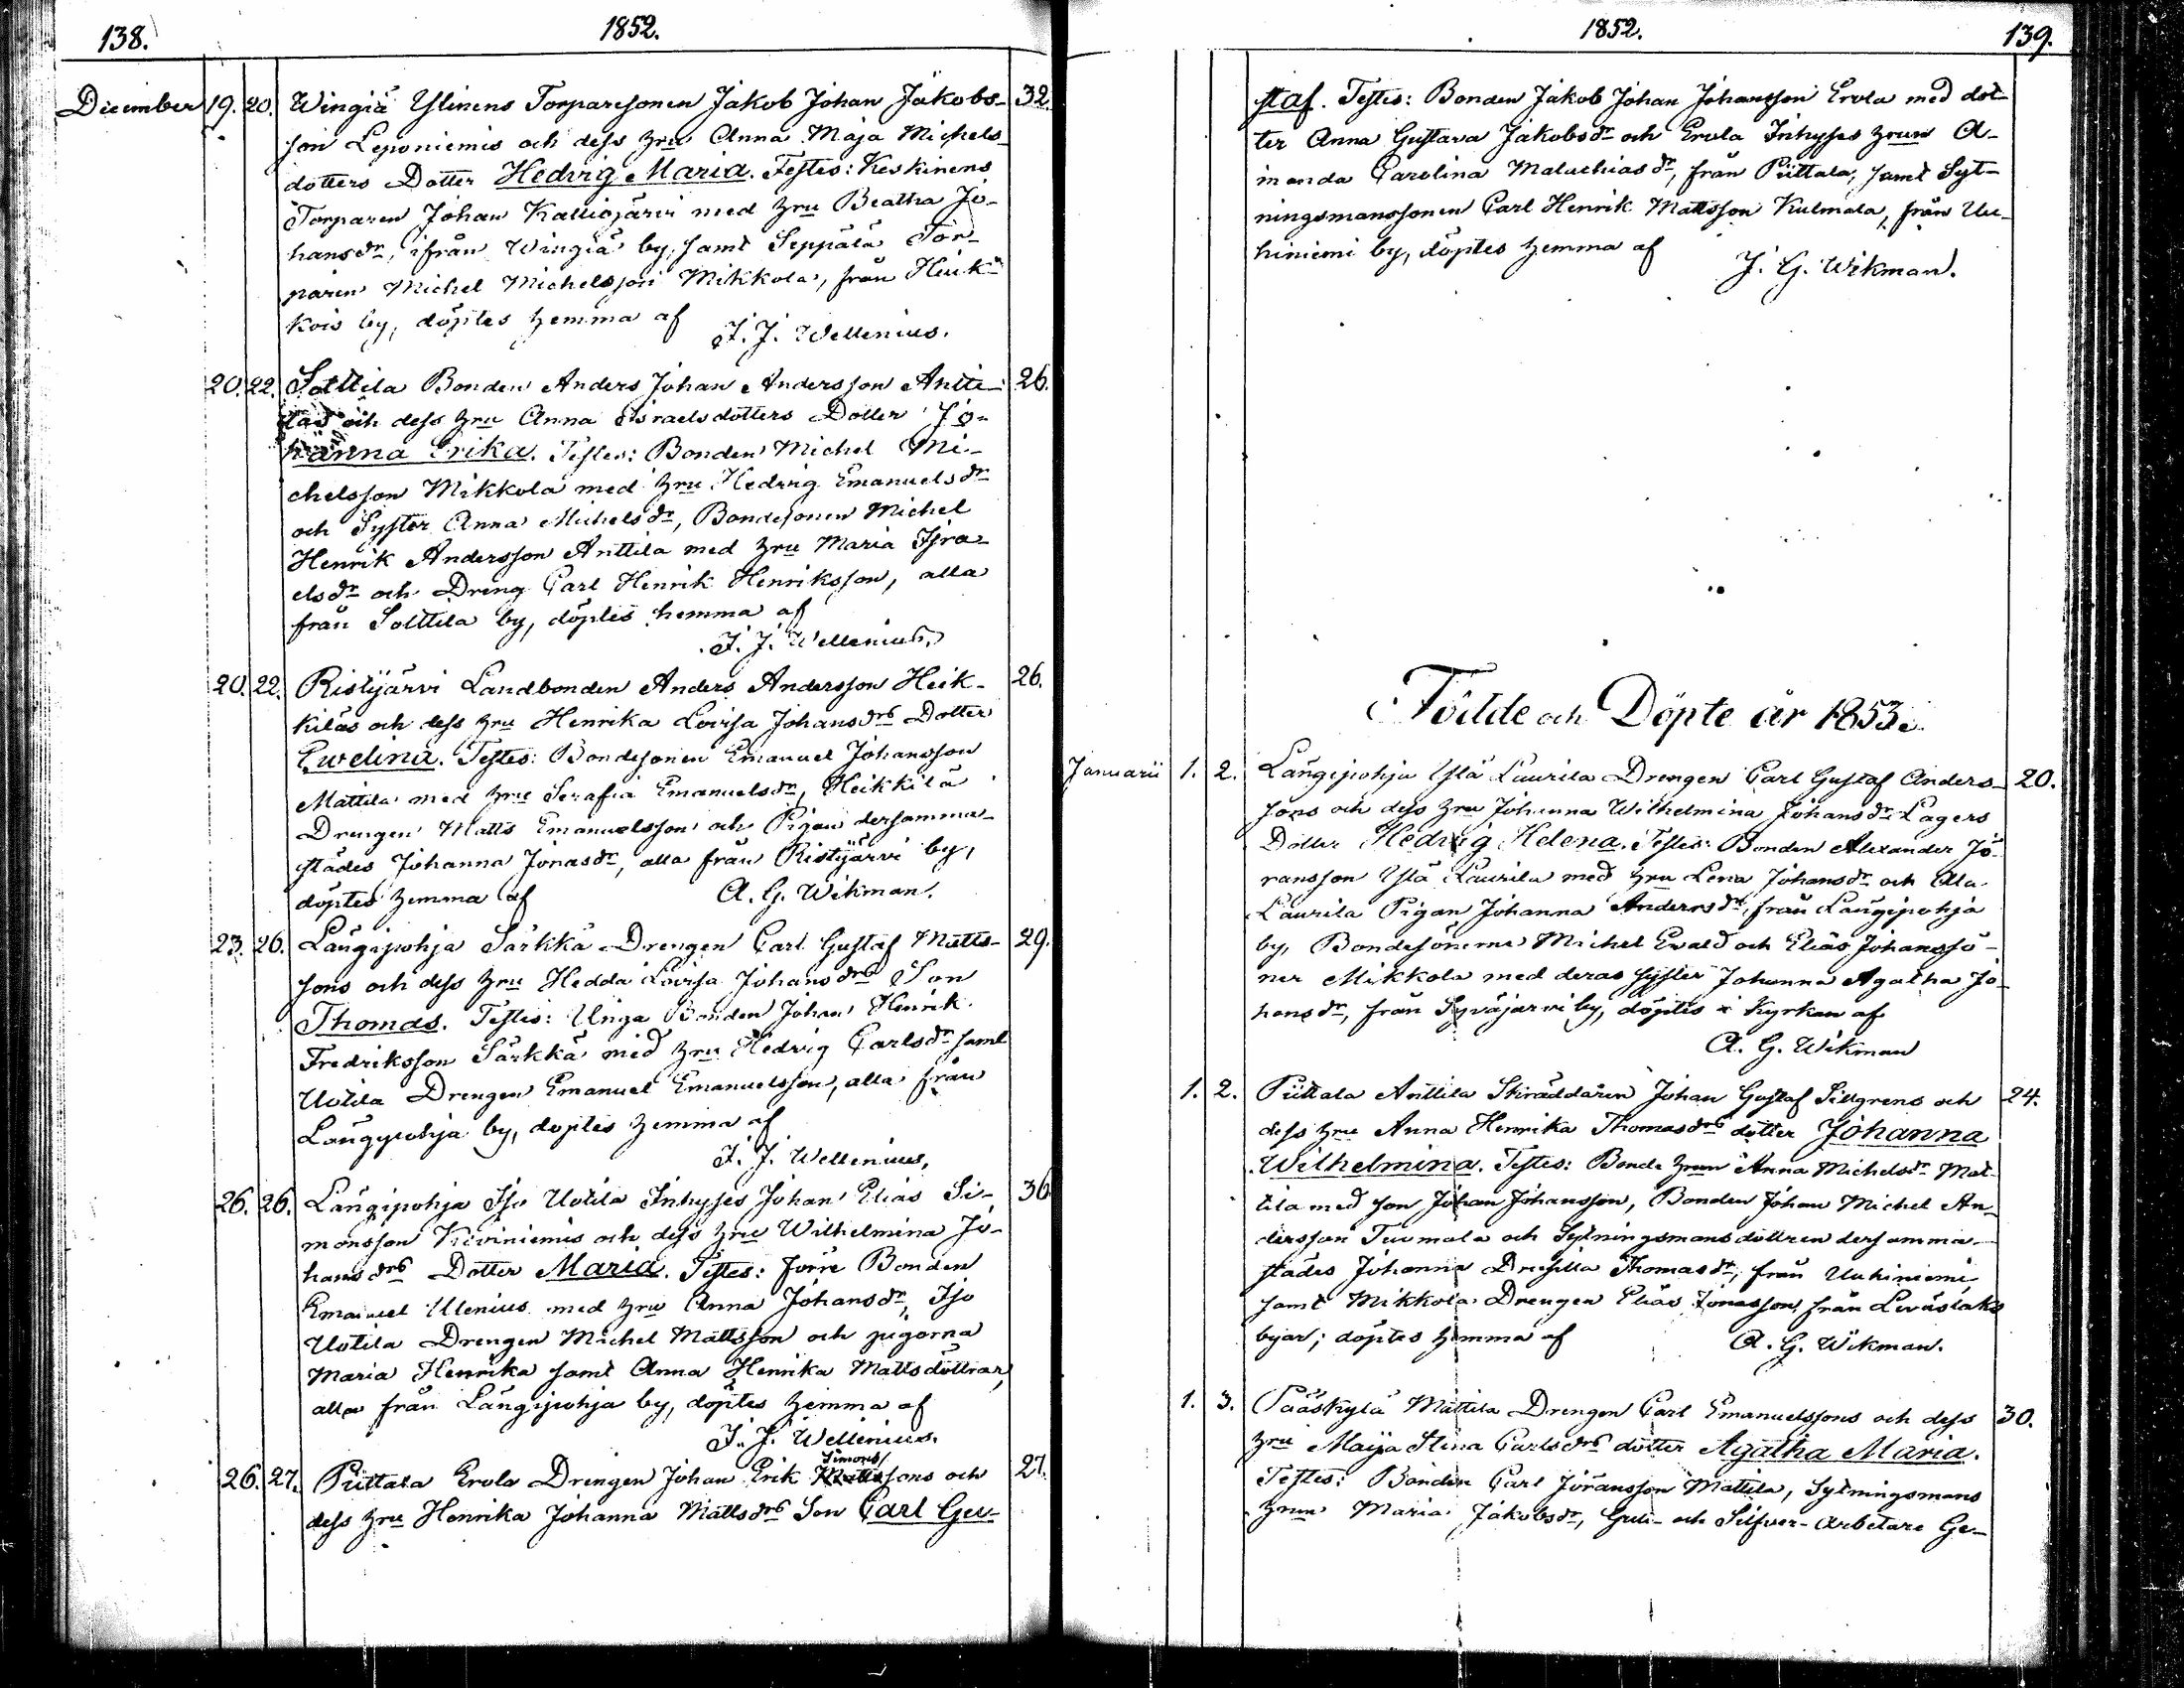 138.
1852.
December 19. 20. Wingiä Ylinens Torparesonen Jakob Johan Jakobs- 32.
son Leponiemis och dess hru Anna Maja Michels-
dotters Dotter Hedvig Maria. Testes: Keskinens
Torparen Johan Kalliojärvi med hru Beatha Jo-
hansdr, ifrån Wingiä by, samt Seppälä Tor-
paren Michel Michelsson Mikkola, från Heik-
kois by, döptes hemma af
J. J. Wellenius.
20. 22. Solttila Bonden Anders Johan Andersson Antti- 26.
las och dess hru Anna Israelsdotters Dotter Jo-
hanna Erika. Testes: Bonden Michel Mi-
chelsson Mikkola med hru Hedvig Emanuelsdr
och Syster Anna Michelsdr, Bondesonen Michel
Henrik Andersson Anttila med hru Maria Isra-
elsdr och Dreng Carl Henrik Henriksson, alla
från Solttila by, döptes hemma af
J. J. Wellenius.
20. 22. Ristijärvi Landbonden Anders Andersson Heik- 26.
kiläs och dess hru Henrika Lovisa Johansdrs Dotter
Ewelina. Testes: Bondesonen Emanuel Johansson
Mattila med hru Serafia Emanuelsdr, Heikkilä
Drengen Matts Emanuelsson och Pigan dersamma-
städes Johanna Jonasdr, alla från Ristijärvi by,
döptes hemma af A. G. Wikman.
23. 26. Längipohja Särkkä Drengen Carl Gustaf Matts- 29.
sons och dess hru Hedda Lovisa Johansdrs Son
Thomas. Testes: Unga Bonden Johan Henrik
Fredriksson Särkkä med hru Hedvig Carlsdr samt
Uotila Drengen Emanuel Emanuelsson, alla från
Längipohja by, döptes hemma af
J. J. Wellenius.
26. 26. Längipohja Iso Uotila Inhyses Johan Elias Si- 36
monsson Kiviniemis och dess hru Wilhelmina Jo-
hansdrs Dotter Maria. Testes: förre Bonden
Emanuel Ulenius med hru Anna Johansdr, Iso
Uotila Drengen Michel Mattsson och pigorna
Maria Henrika samt Anna Henrika Mattsdöttrar,
alla från Längipohja by, döptes hemma af
J. J. Wellenius.
Simons/
26. 27. Piittala Erola Drengen Johan Erik Mattssons och 27.
dess hru Henrika Johanna Mattsdrs Son Carl Gu-
1852.
139.
staf. Testes: Bonden Jakob Johan Johansson Erola med dot-
ter Anna Gustava Jakobsdr och Erola Inhyses hrun A-
manda Carolina Malachiasdr, från Piittala, samt Syt-
ningsmanssonen Carl Henrik Mattsson Kulmala, från Uu-
hiniemi by, döptes hemma af
J. G. Wikman.
Födde och Döpte år 1853.
Januarii 1. 2. Längipohja Ylä Laurila Drengen Carl Gustaf Anders- 20.
sons och dess hru Johanna Wilhelmina Johansdr Lagers
Dotter Hedvig Helena. Testes: Bonden Alexander Jö-
ransson Ylä Laurila med hru Lena Johansdr och Ala
Laurila Pigan Johanna Andersdr, från Längipohja
by, Bondesönerne Michel Evald och Elias Johansso-
ner Mikkola med deras syster Johanna Agatha Jo-
hansdr, från Syväjärvi by, döptes i Kyrkan af
A. G. Wikman
1. 2. Piittala Anttila Skräddaren Johan Gustaf Sillgrens och 24.
dess hru Anna Henrika Thomasdrs dotter Johanna
Wilhelmina. Testes: Bonde hrun Anna Michelsdr Mat-
tila med son Johan Johansson, Bonden Johan Michel An-
dersson Tuomala och Sytningsmansdottren dersamma-
städes Johanna Drusilla Thomasdr, från Uuhiniemi
samt Mikkola Drengen Elias Jonasson från Leväslaks
byar; döptes hemma af A. G. Wikman.
1. 3. Pääskylä Mattila Drengen Carl Emanuelssons och dess 30.
hru Maija Stina Carlsdrs dotter Agatha Maria.
Testes: Bonden Carl Jöransson Mattila, Sytningsmans
hrun Maria Jakobsdr, Gull- och Silfver-Arbetare Ge-